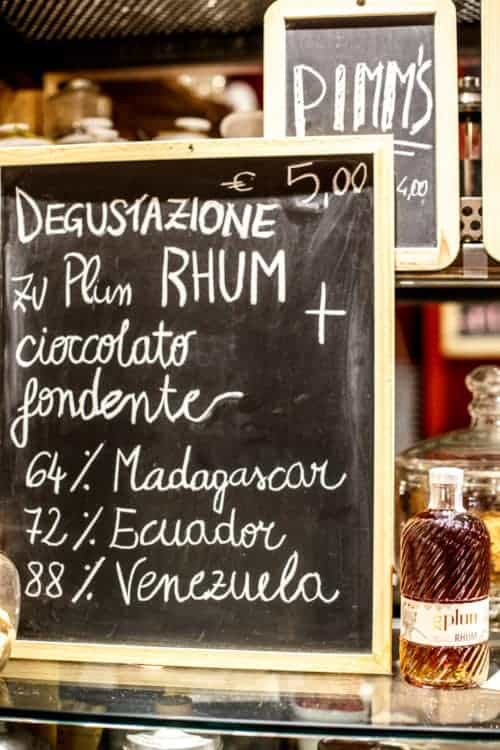 PIMM'S
4,00
€ 5,00
DEGUSTAZIONE
zu Plun RHUM
+
cioccolato
fondente
64% Madagascar
72% Ecuador
88% Venezuela
RHUM